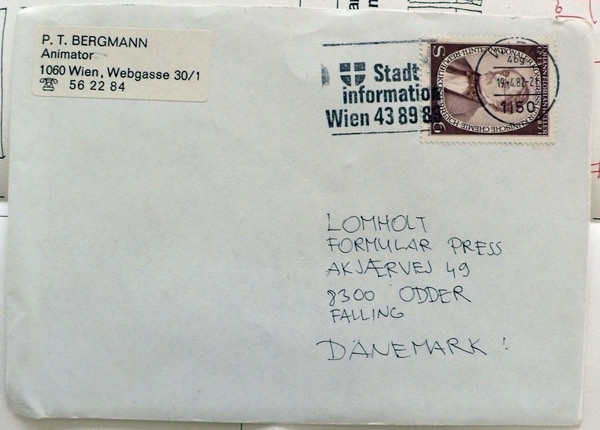 P. T. BERGMANN
Animator
1060 Wien, Webgasse 30/1
☎ 56 22 84
Stadt
information
Wien 43 89 8
1150
LOMHOLT
FORMULAR PRESS
AKJÆRVEJ 49
8300 ODDER
FALLING
DÄNEMARK!